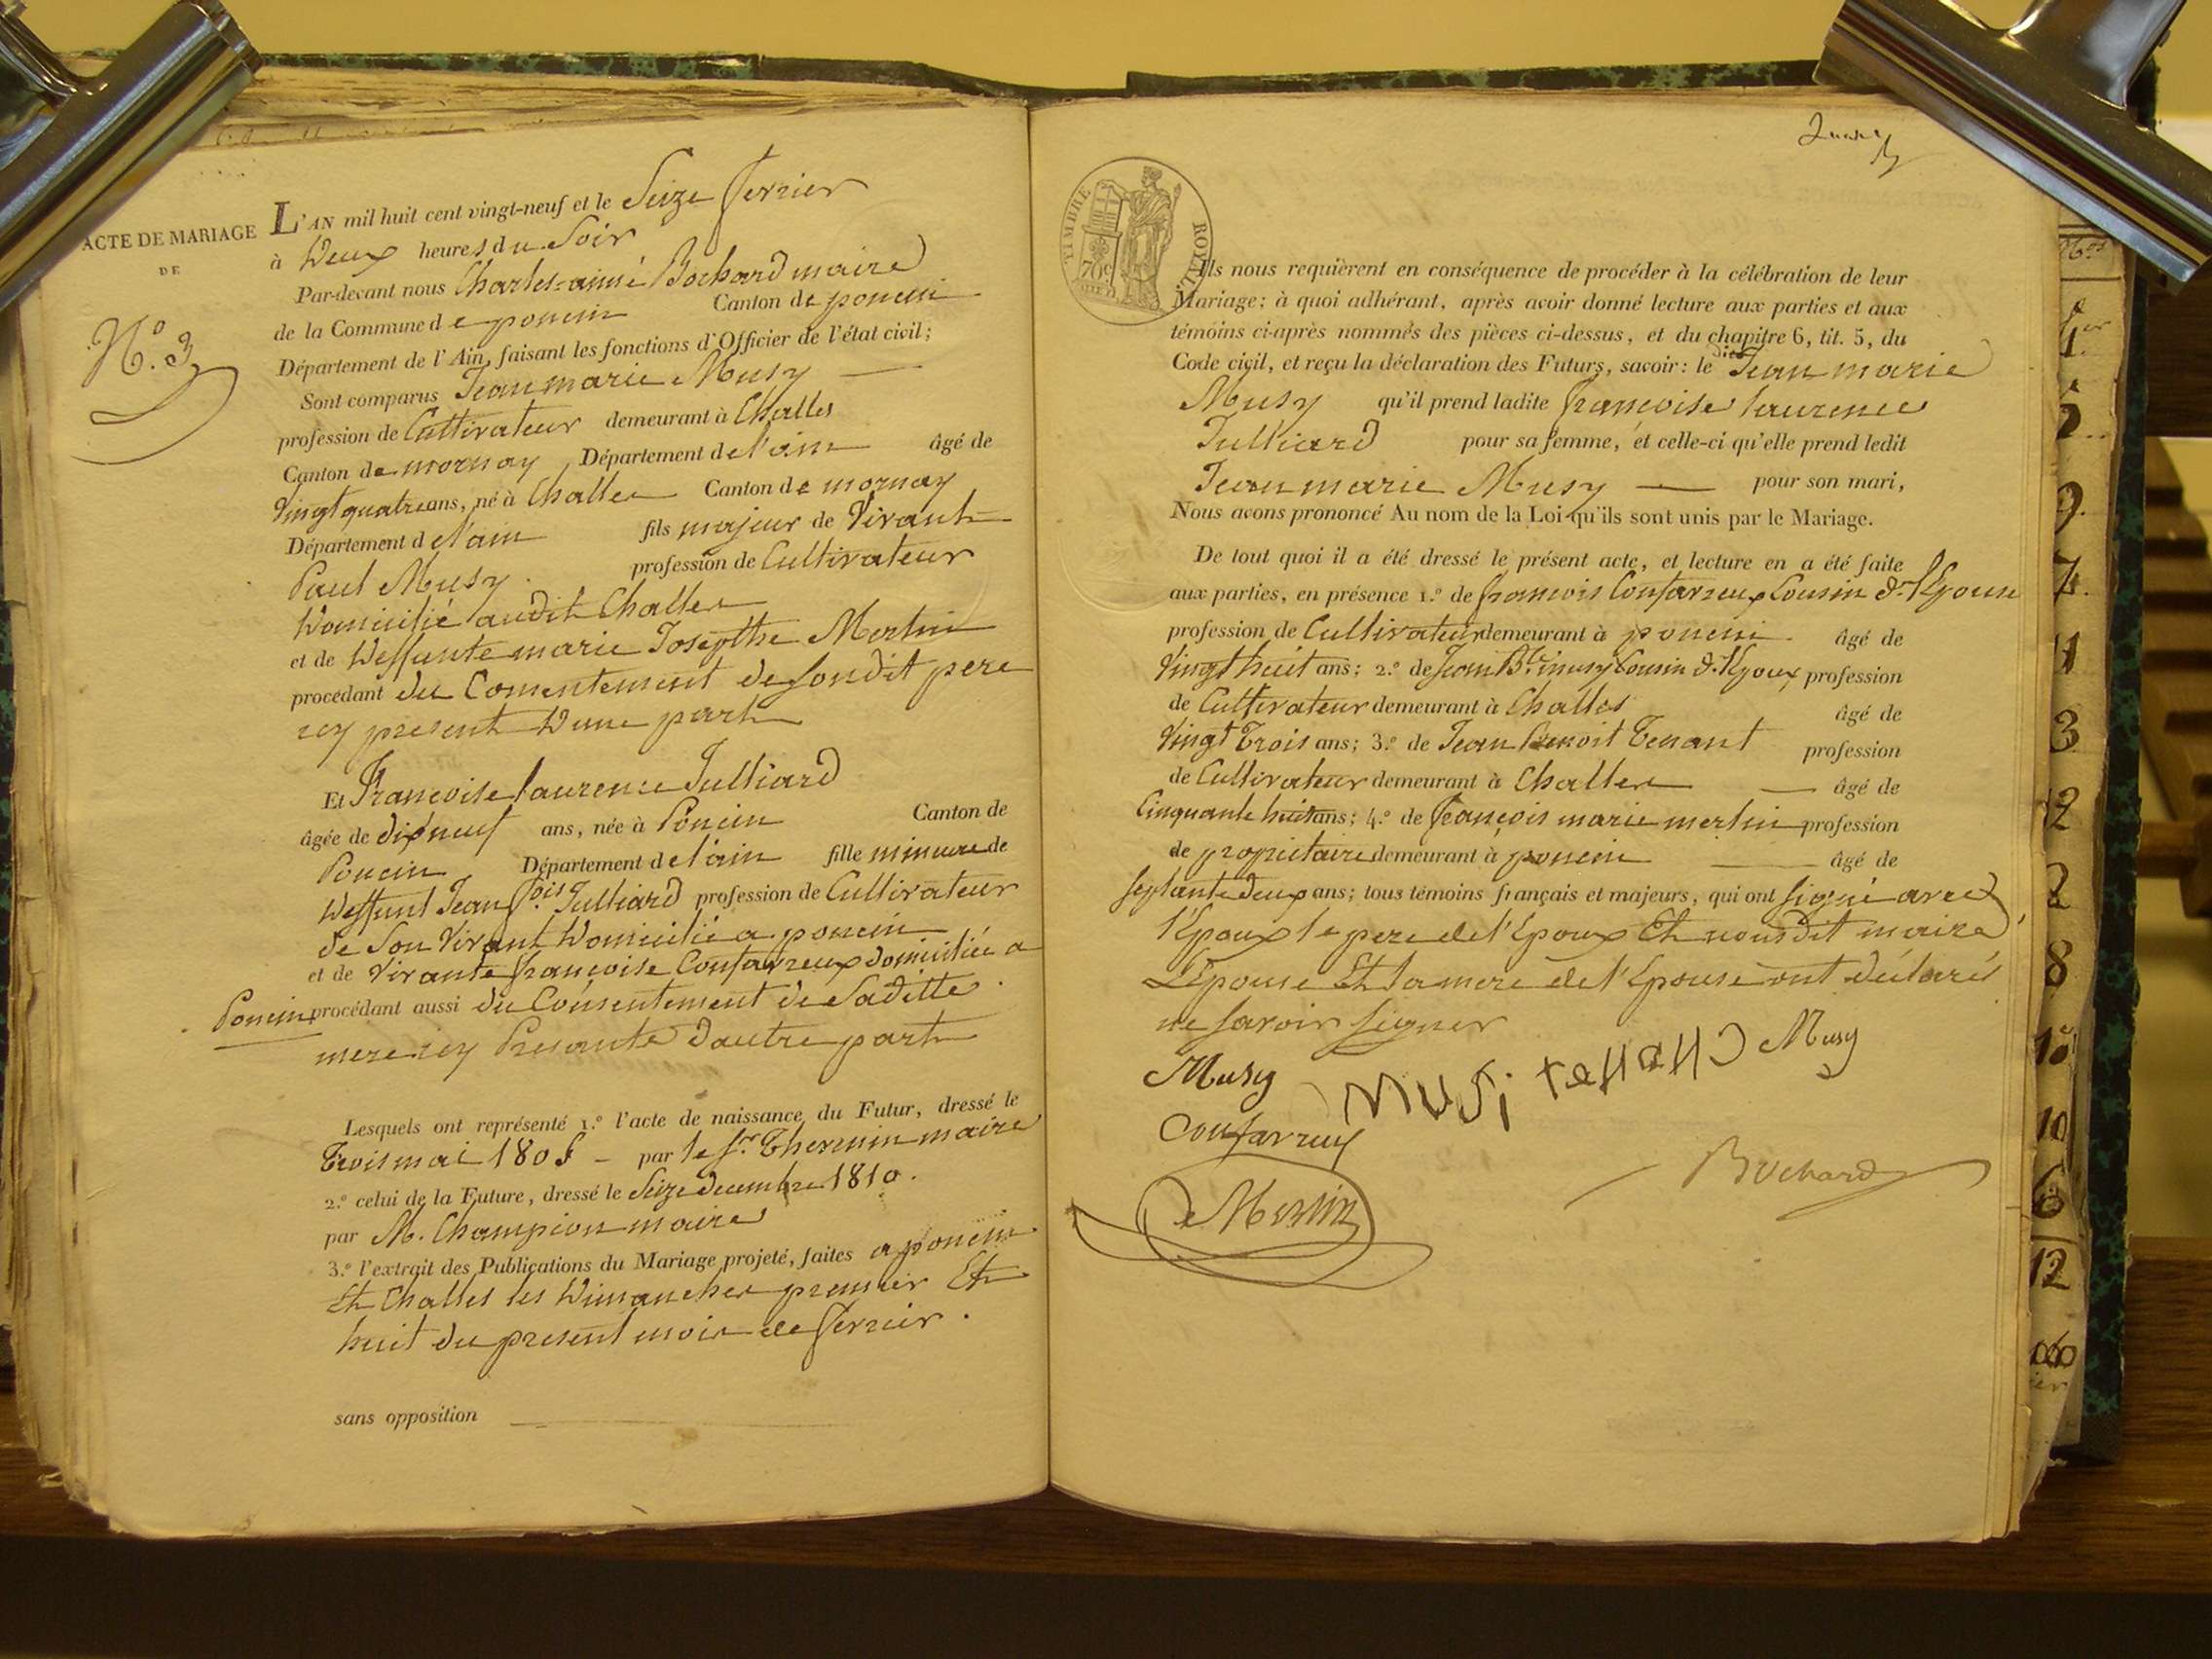 ACTE DE MARIAGE
DE
N.º 3
L'AN mil huit cent vingt-neuf et le Seize fevrier
à Deux heures du Soir
Par-devant nous Charles-aimé Bochard maire
de la Commune de poncin Canton de poncin
Département de l'Ain, faisant les fonctions d'Officier de l'état civil;
Sont comparus Jean marie Musy
profession de Cultivateur demeurant à Challes
Canton de mornay Département de l'ain âgé de
Vingt quatre ans, né à Challes Canton de mornay
Département de l'ain fils majeur de Vivant
Paul Musy profession de Cultivateur
Domicilié audit Challes
et de Deffunte marie Josepthe Merlin
procédant du Consentement de Sondit pere
icy present D'une part
Et Francoise laurence Julliard
âgée de dix neuf ans, née à Poncin Canton de
Poncin Département de l'ain fille mineure de
Deffunt Jean fois Julliard profession de Cultivateur
de Son Vivant Domicilié a poncin
et de Vivante françoise Confavreux domiciliée a
Poncin procédant aussi du Consentement de Saditte
mere icy Presante D'autre part
Lesquels ont représenté 1.º l'acte de naissance du Futur, dressé le
Trois mai 1805 - par le Sr. Thevenin maire
2.º celui de la Future, dressé le Seize decembre 1810.
par M. Champion maire
3.º l'extrait des Publications du Mariage projeté, faites a poncin
Et Challes les Dimanches premier Et
huit du present mois de fevrier.
sans opposition
TIMBRE ROYAL
70c
Ils nous requièrent en conséquence de procéder à la célébration de leur
Mariage; à quoi adhérant, après avoir donné lecture aux parties et aux
témoins ci-après nommés des pièces ci-dessus, et du chapitre 6, tit. 5, du
Code civil, et reçu la déclaration des Futurs, savoir: le dit Jean marie
Musy qu'il prend ladite françoise laurence
Julliard pour sa femme, et celle-ci qu'elle prend ledit
Jean marie Musy pour son mari,
Nous avons prononcé Au nom de la Loi qu'ils sont unis par le Mariage.
De tout quoi il a été dressé le présent acte, et lecture en a été faite
aux parties, en présence 1.º de françois Confavreux Cousin de
profession de Cultivateur demeurant à poncin âgé de
Vingt huit ans; 2.º de Jean Bte. musy Cousin de profession
de Cultivateur demeurant à Challes âgé de
Vingt Trois ans; 3.º de Jean Benoit Tenant profession
de Cultivateur demeurant à Challes âgé de
Cinquante huit ans; 4.º de françois marie merlin profession
de propriétaire demeurant à poncin âgé de
Septante deux ans; tous témoins français et majeurs, qui ont signé avec
l'Epoux le pere de l'Epoux Et nousdit maire
L'Epouse Et la mere de l'Epouse ont déclaré
ne savoir signer
Musy Musi Musy
Confavreux
Bochard
Merlin